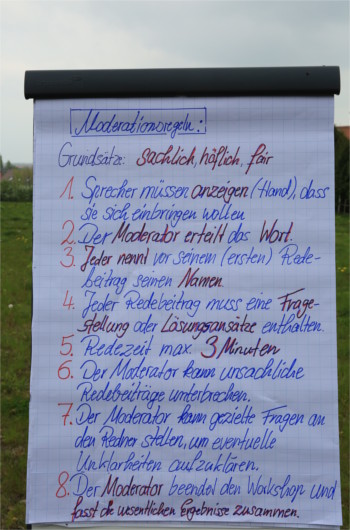 Moderationsregeln:
Grundsätze: sachlich, höflich, fair
1. Sprecher müssen anzeigen (Hand), dass
sie sich einbringen wollen
2. Der Moderator erteilt das Wort.
3. Jeder nennt vor seinem (ersten) Rede-
beitrag seinen Namen
4. Jeder Redebeitrag muss eine Frage-
stellung oder Lösungsansätze enthalten.
5. Redezeit max. 3 Minuten
6. Der Moderator kann unsachliche
Redebeiträge unterbrechen.
7. Der Moderator kann gezielte Fragen an
den Redner stellen, um eventuelle
Unklarheiten aufzuklären.
8. Der Moderator beendet den Workshop und
fasst die wesentlichen Ergebnisse zusammen.